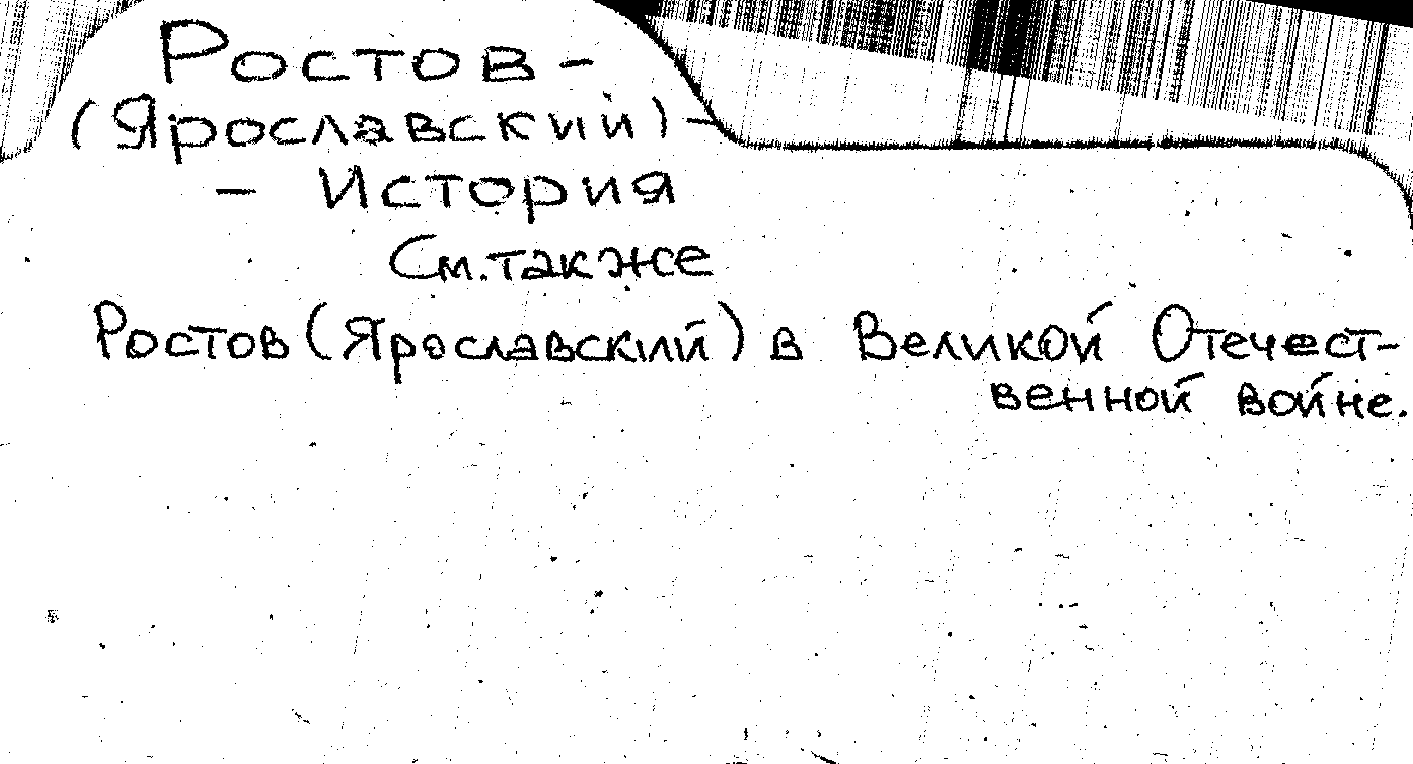 Ростов -
(Ярославский) -
- История
См. также
Ростов (Ярославский) в Великой Отечест-
венной войне.